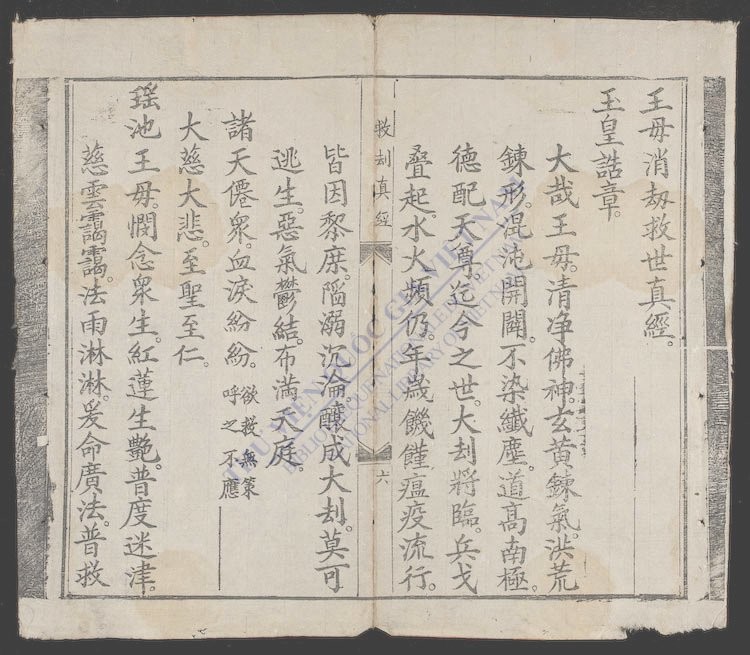 王母消劫救世真經。
玉皇誥章。
大哉王母。清净佛神。玄黃鍊氣。洪荒
鍊形。混沌開闢。不染纖塵。道高南極。
德配天尊。迄今之世。大刦將臨。兵戈
叠起。水火頻仍。年歲饑饉。瘟疫流行。
救刦真經
六
皆因黎庶。陷溺沉淪。釀成大刦。莫可
逃生。惡氣鬱結。布滿天庭。
諸天僊衆。血淚紛紛。欲救無策呼之不應
大慈大悲。至聖至仁。
瑶池王母。憫念衆生。紅蓮生艷。普度迷津。
慈雲靄靄。法雨淋淋。爰命廣法。普救
THƯ VIỆN QUỐC GIA VIỆT NAM
BIBLIOTHEQUE NATIONALE DU VIETNAM
NATIONAL LIBRARY OF VIETNAM